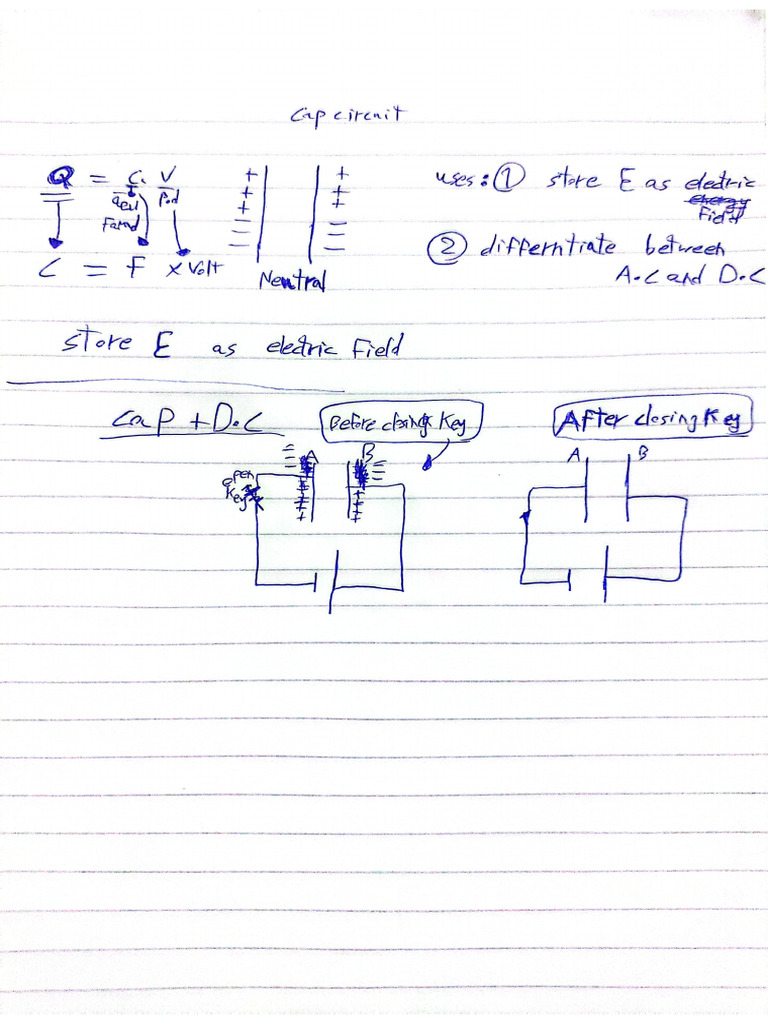 Cap circuit
Q = C. V
Farad
P.d
C = F x Volt
+ +
+ +
+ +
− −
− −
Neutral
uses: ① store E as electric
Field
② differntiate between
A.C and D.C
store E as electric Field
Cap + D.C
Before closing Key
After closing Key
A B
open
Key
A B